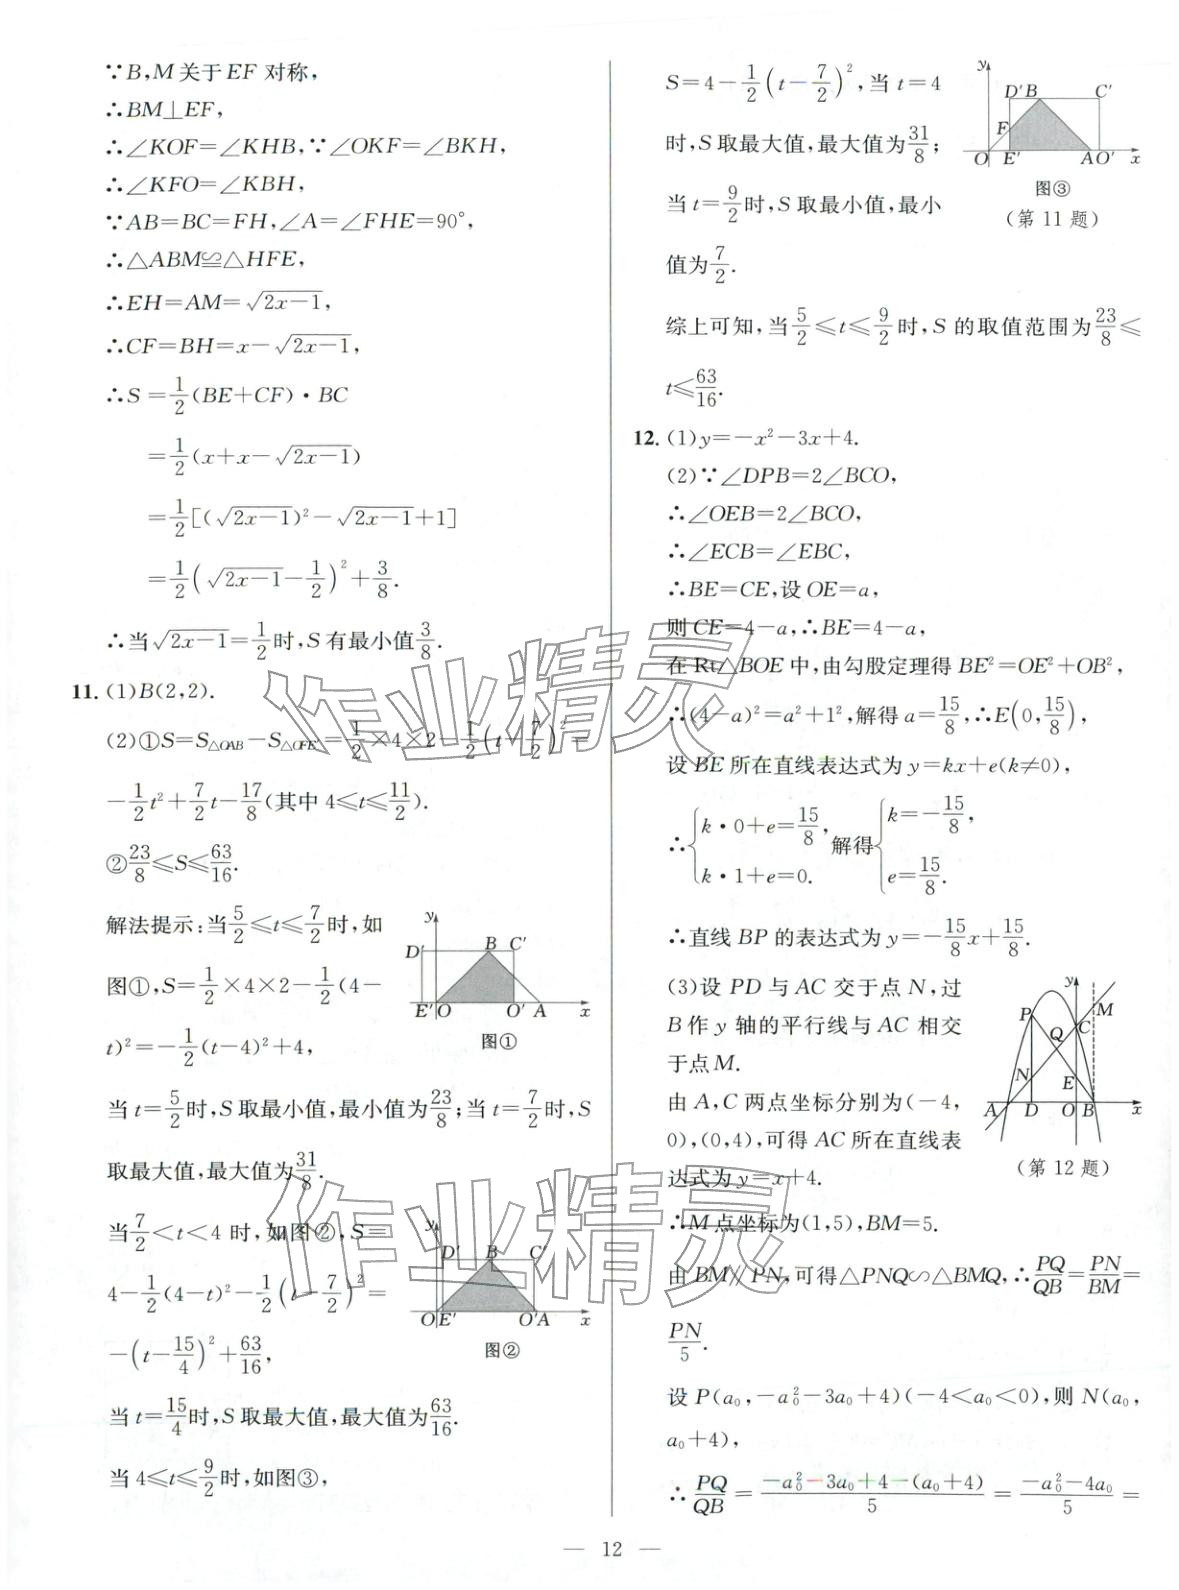 ∵B,M关于EF对称,
∴BM⊥EF,
∴∠KOF=∠KHB,∵∠OKF=∠BKH,
∴∠KFO=∠KBH,
∵AB=BC=FH,∠A=∠FHE=90°,
∴△ABM≌△HFE,
∴EH=AM=√(2x-1),
∴CF=BH=x-√(2x-1),
∴S=1/2(BE+CF)·BC
=1/2(x+x-√(2x-1))
=1/2[(√(2x-1))²-√(2x-1)+1]
=1/2(√(2x-1)-1/2)²+3/8.
∴当√(2x-1)=1/2时,S有最小值3/8.
11.(1)B(2,2).
(2)①S=S△OAB-S△OFE'=1/2×4×2-1/2(t-7/2)²=
-1/2t²+7/2t-17/8(其中4≤t≤11/2).
②23/8≤S≤63/16.
解法提示:当5/2≤t≤7/2时,如
图①,S=1/2×4×2-1/2(4-
t)²=-1/2(t-4)²+4,
y
D' B C'
E' O O' A x
图①
当t=5/2时,S取最小值,最小值为23/8;当t=7/2时,S
取最大值,最大值为31/8.
当7/2<t<4时,如图②,S=
4-1/2(4-t)²-1/2(t-7/2)²=
-(t-15/4)²+63/16,
y
D' B C'
O E' O'A x
图②
当t=15/4时,S取最大值,最大值为63/16.
当4≤t≤9/2时,如图③,
S=4-1/2(t-7/2)²,当t=4
时,S取最大值,最大值为31/8;
当t=9/2时,S取最小值,最小
值为7/2.
y
D' B C'
F
O E' A O' x
图③
(第11题)
综上可知,当5/2≤t≤9/2时,S的取值范围为23/8≤
t≤63/16.
12.(1)y=-x²-3x+4.
(2)∵∠DPB=2∠BCO,
∴∠OEB=2∠BCO,
∴∠ECB=∠EBC,
∴BE=CE,设OE=a,
则CE=4-a,∴BE=4-a,
在Rt△BOE中,由勾股定理得BE²=OE²+OB²,
∴(4-a)²=a²+1²,解得a=15/8,∴E(0,15/8),
设BE所在直线表达式为y=kx+e(k≠0),
∴{k·0+e=15/8, k·1+e=0. 解得{k=-15/8, e=15/8.
∴直线BP的表达式为y=-15/8x+15/8.
(3)设PD与AC交于点N,过
B作y轴的平行线与AC相交
于点M.
由A,C两点坐标分别为(-4,
0),(0,4),可得AC所在直线表
达式为y=x+4.
y
P M
Q C
N E
A D O B x
(第12题)
∴M点坐标为(1,5),BM=5.
由BM∥PN,可得△PNQ∽△BMQ,∴PQ/QB=PN/BM=
PN/5.
设P(a₀,-a₀²-3a₀+4)(-4<a₀<0),则N(a₀,
a₀+4),
∴PQ/QB=(-a₀²-3a₀+4-(a₀+4))/5=(-a₀²-4a₀)/5=
— 12 —
作业精灵
作业精灵